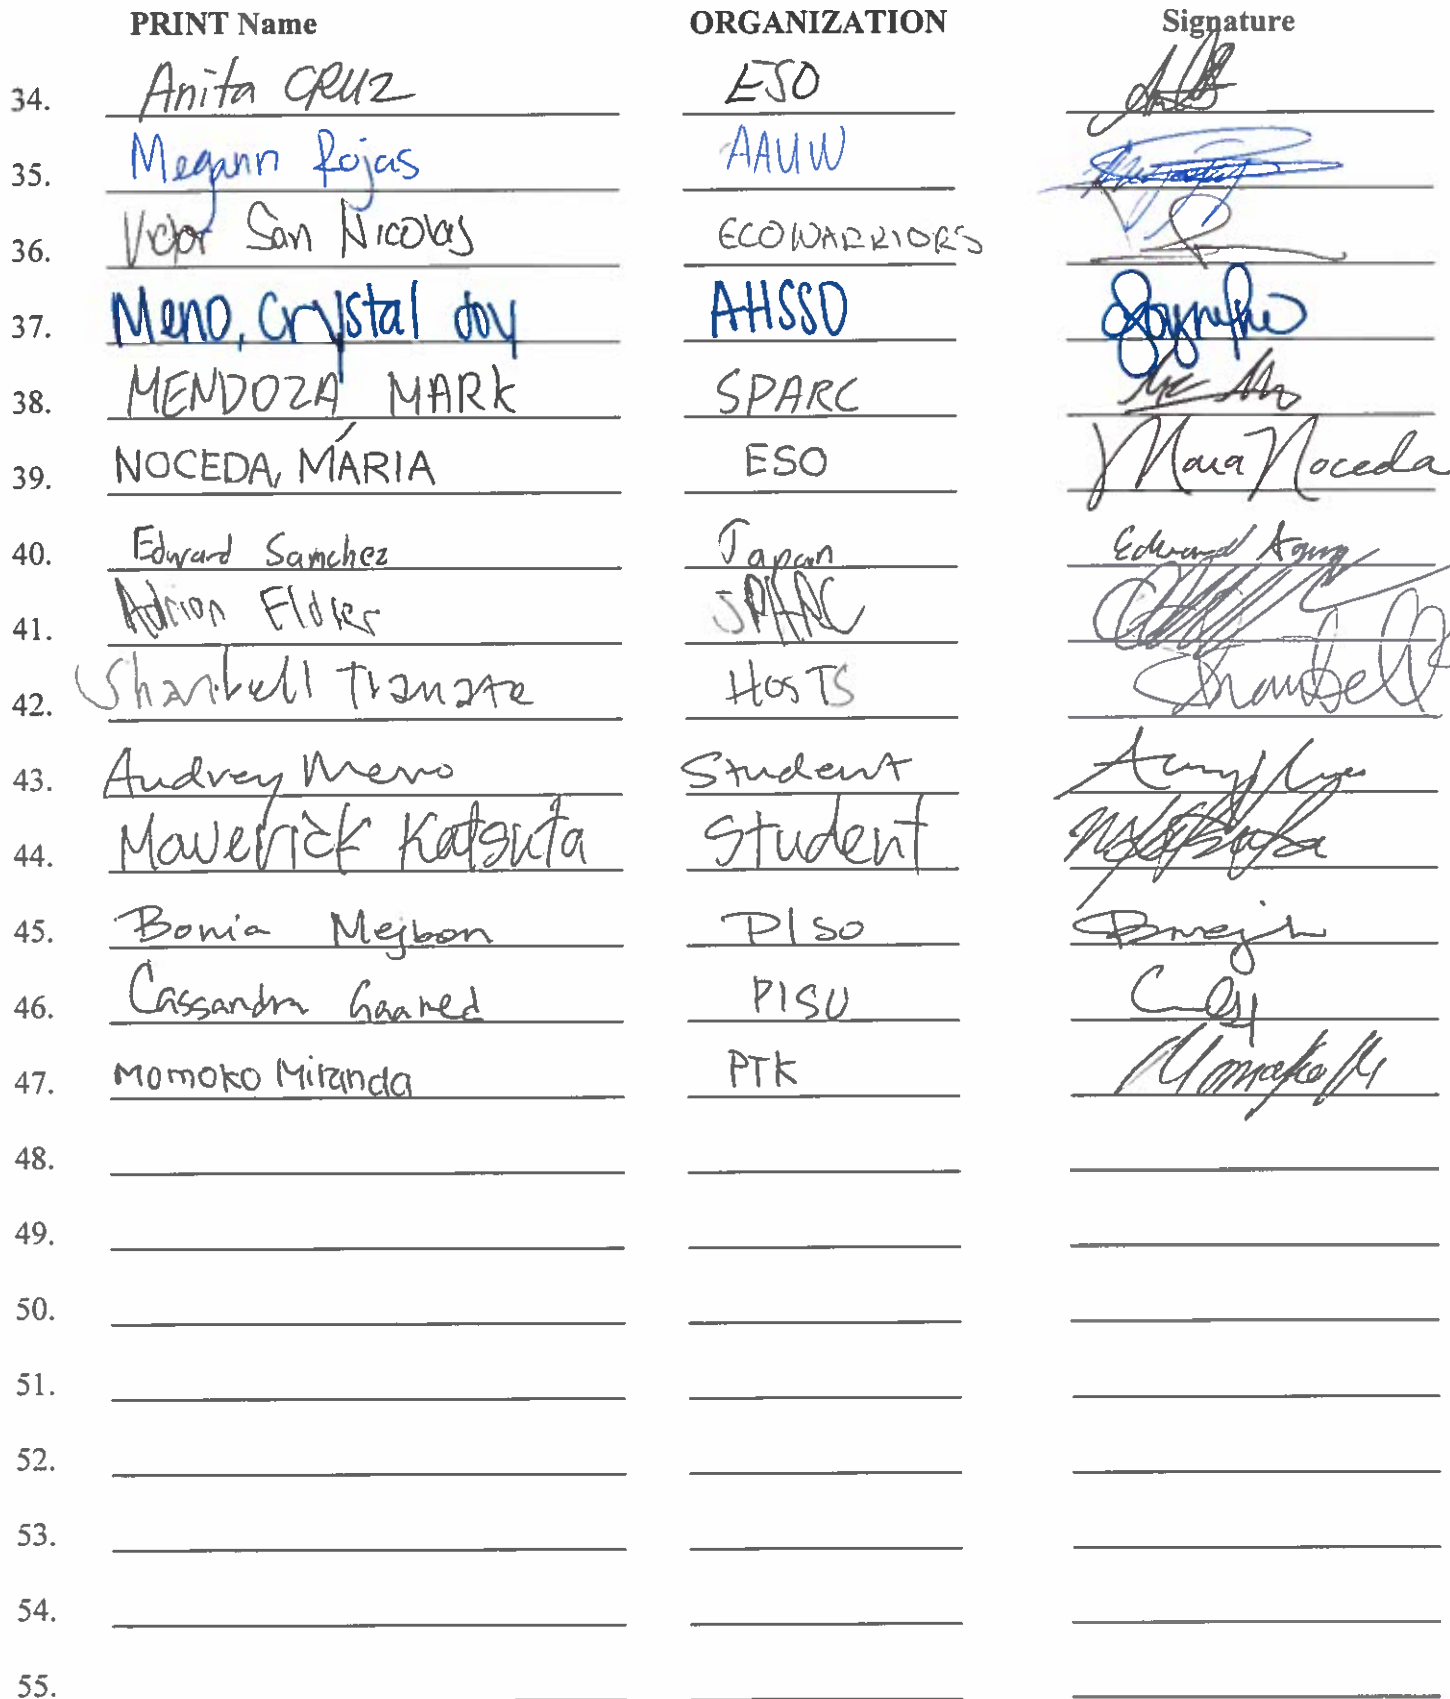 PRINT Name ORGANIZATION Signature
34. Anita CRUZ ESO
35. Megann Rojas AAUW
36. Victor San Nicolas ECOWARRIORS
37. Meno, Crystal Joy AHSSO
38. MENDOZA MARK SPARC
39. NOCEDA, MARIA ESO Maria Noceda
40. Edward Sanchez Japan Edward
41. Adrian
42. HOSTS
43. Audrey Meno Student
44. Maverick Katsuta Student
45. Bonia Mejbon PISO
46. Cassandra PISU
47. Momoko Miranda PTK Momoko M
48.
49.
50.
51.
52.
53.
54.
55.